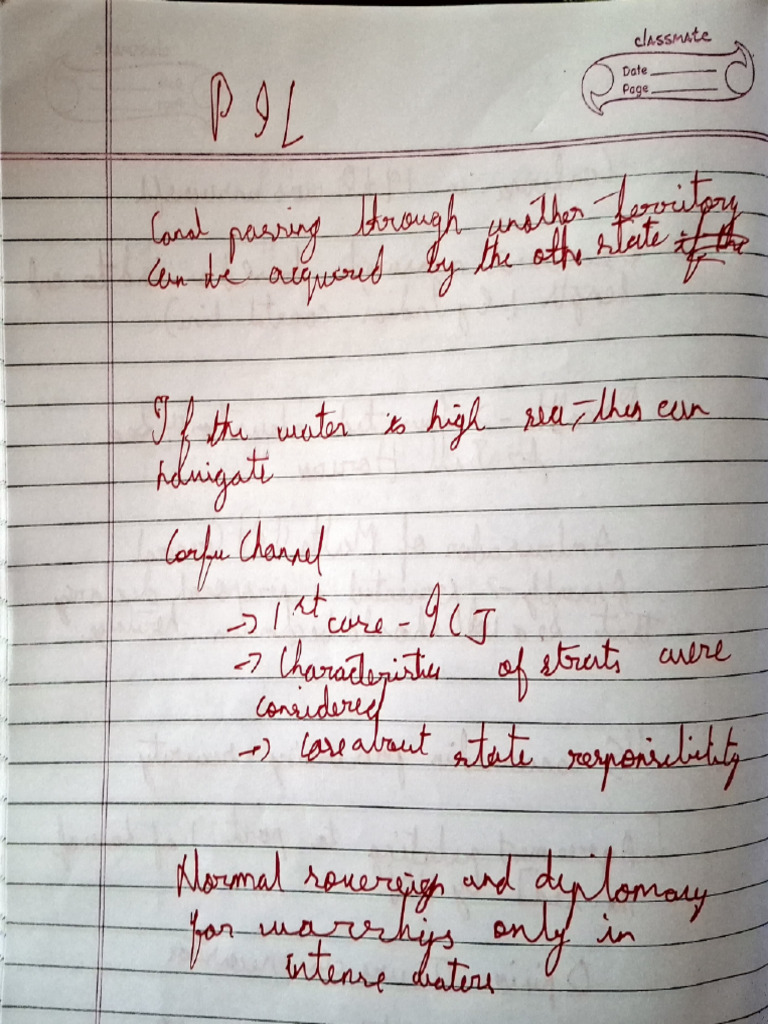 classmate
Date
Page
PIL
Canal passing through another territory
can be acquired by the othe state if the
If the water is high sea, they can
navigate
Corfu Channel
→ 1st case - ICJ
→ Characteristics of straits were
considered
→ Case about state responsibility
Normal sovereign and diplomacy
for warships only in
intense waters